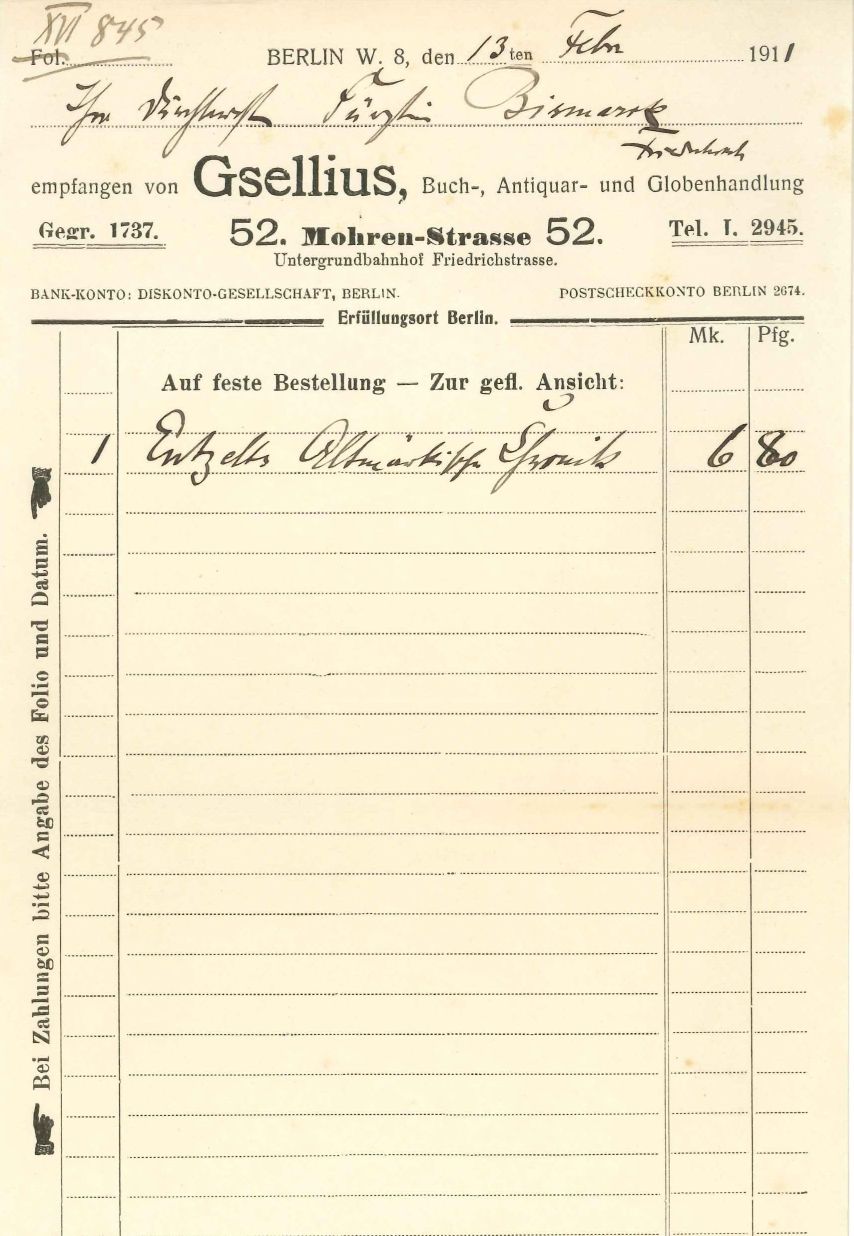 XVI 845
Fol.
BERLIN W. 8, den 13ten Febr 1911
Ihre Durchlaucht Fürstin Bismarck
empfangen von Gsellius, Buch-, Antiquar- und Globenhandlung
Gegr. 1737. 52. Mohren-Strasse 52. Tel. I. 2945.
Untergrundbahnhof Friedrichstrasse.
BANK-KONTO: DISKONTO-GESELLSCHAFT, BERLIN. POSTSCHECKKONTO BERLIN 2674.
Erfüllungsort Berlin.
Mk. Pfg.
Auf feste Bestellung — Zur gefl. Ansicht:
1 Entzelts Altmärkische Chronik 6 80
Bei Zahlungen bitte Angabe des Folio und Datum.